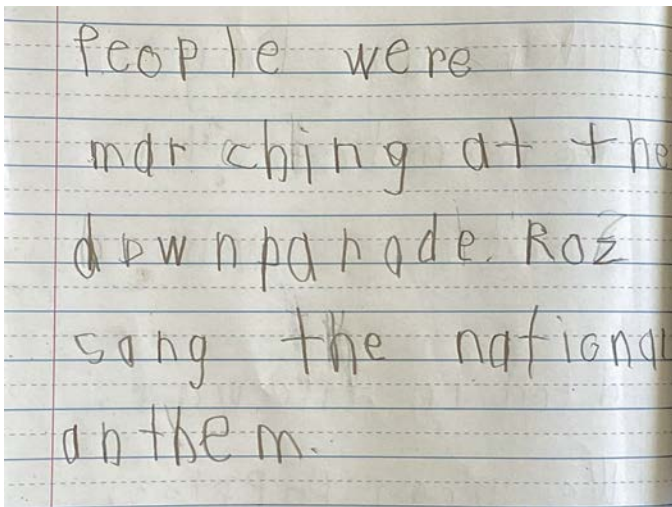 People were
marching at the
downparade. Roz
sang the national
anthem.